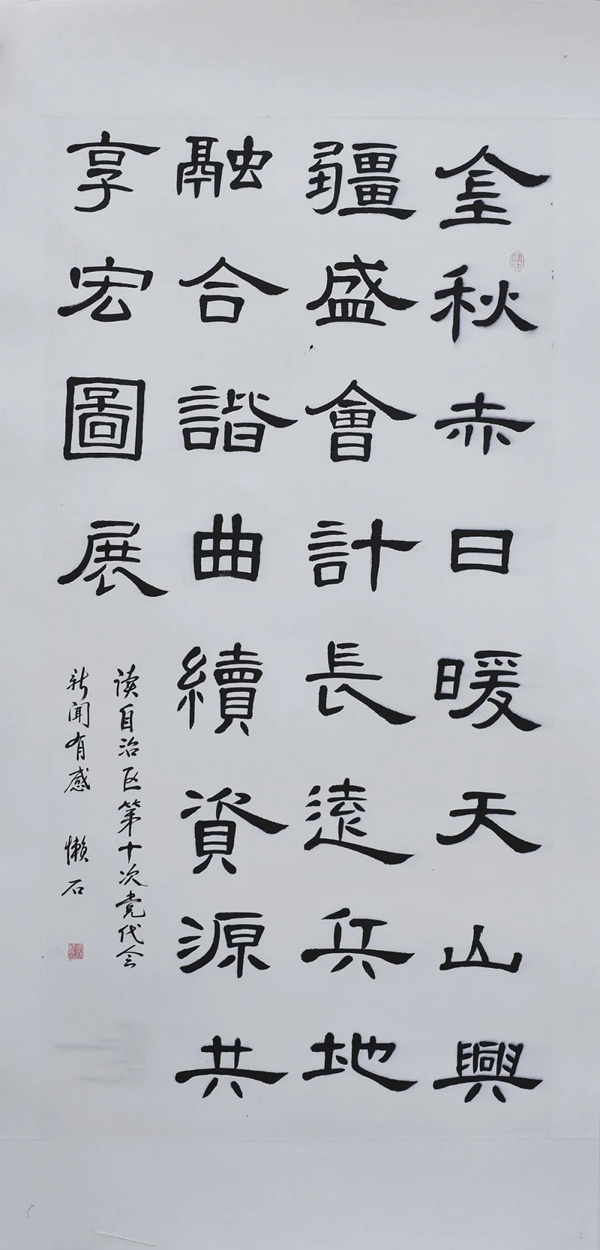 金秋赤日暖天山興
疆盛會計長遠兵地
融合諧曲續資源共
享宏圖展
读自治区第十次党代会
新闻有感 懒石